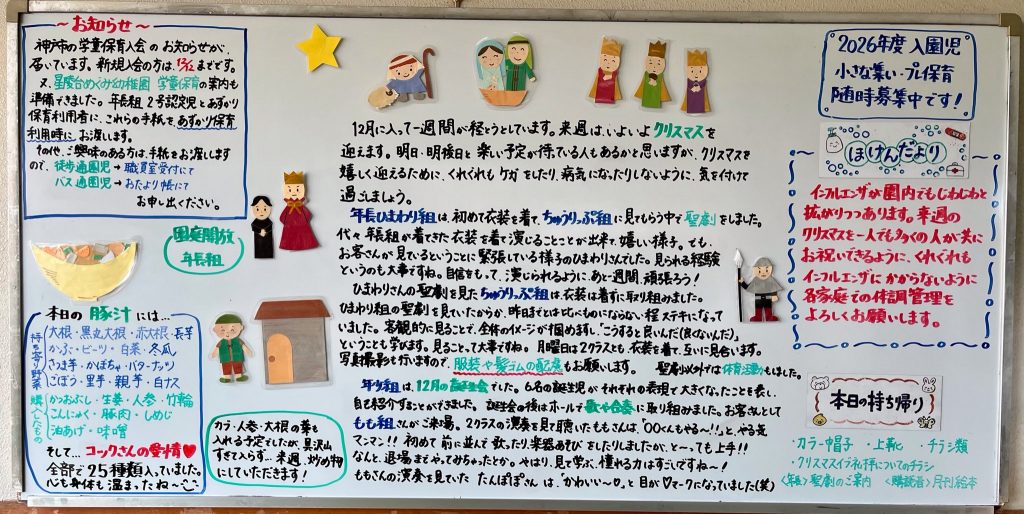 ～お知らせ～
神戸市の学童保育入会のお知らせが、
届いています。新規入会の方は、12/12までです。
又、星陵台めぐみ幼稚園 学童保育の案内も
準備できました。年長組、2号認定児とあずかり
保育利用者に、これらの手紙をあずかり保育
利用時にお渡しします。
その他、ご興味のある方は、手紙をお渡しします
ので、徒歩通園児→職員室受付にて
バス通園児→おたより帳にて
お申し出ください。
園庭開放
年長組
本日の豚汁には…
持ち寄り野菜
大根・黒丸大根・赤大根・長芋
かぶ・ビーツ・白菜・冬瓜
さつま芋・かぼちゃ・バターナッツ
ごぼう・里芋・親芋・白ナス
購入したもの
かつおぶし・生姜・人参・竹輪
こんにゃく・豚肉・しめじ
油あげ・味噌
そして…コックさんの愛情♥
全部で25種類入っていました。
心も身体も温まったね～
カラ・人参・大根の葉も
入れる予定でしたが、具沢山
すぎて入らず…来週、炒め物
にしていただきます!
12月に入って一週間が経とうとしています。来週は、いよいよクリスマスを
迎えます。明日・明後日と楽しい予定が待っている人もあるかと思いますが、クリスマスを
嬉しく迎えるために、くれぐれもケガをしたり、病気になったりしないように、気を付けて
過ごしましょう。
年長ひまわり組は、初めて衣装を着て、ちゅうりっぷ組に見てもらう中で聖劇をしました。
代々年長組が着てきた衣装を着て演じることことが出来て、嬉しい様子。でも、
お客さんが見ているということに緊張している様子のひまわりさんでした。見られる経験
というのも大事ですね。自信をもって、演じられるように、あと一週間、頑張ろう!
ひまわりさんの聖劇を見たちゅうりっぷ組は、衣装は着ずに取り組みました。
ひまわり組の聖劇を見ていたからか、昨日までとは比べものにならない程ステキになって
いました。客観的に見ることで、全体のイメージが掴めますし、“こうすると良いんだ(良くないんだ)”
ということも学びます。見ることって大事ですね。月曜日は2クラスとも、衣装を着て、互いに見合います。
写真撮影も行いますので、服装や髪ゴムの配慮もお願いします。 聖劇以外では体育活動もしました。
年少組は、12月の誕生会でした。6名の誕生児がそれぞれの表現で大きくなったことを表し、
自己紹介することができました。誕生会の後はホールで歌や合奏に取り組みました。お客さんとして
もも組さんがご来場。2クラスの演奏を見て聴いたももさんは、「〇〇くんもやる～!!」と、やる気
マンマン!! 初めて前に並んで歌ったり、楽器あそびをしたりしましたが、と～っても上手!!
なんと、退場までやってみちゃったとか。やはり、見て学ぶ、憧れる力はすごいですね～!
ももさんの演奏を見ていたたんぽぽさんは、“かわいい～♡。”と目が♡マークになっていました(笑)
2026年度 入園児
小さな集い・プレ保育
随時募集中です!
ほけんだより
インフルエンザが園内でもじわじわと
拡がりつつあります。来週の
クリスマスを一人でも多くの人が共に
お祝いできるように、くれぐれも
インフルエンザにかからないように
各家庭での体調管理を
よろしくお願いします。
本日の持ち帰り
・カラー帽子 ・上靴 ・チラシ類
・クリスマスイブ礼拝についてのチラシ
〈年長〉聖劇のご案内 〈購読者〉月刊絵本